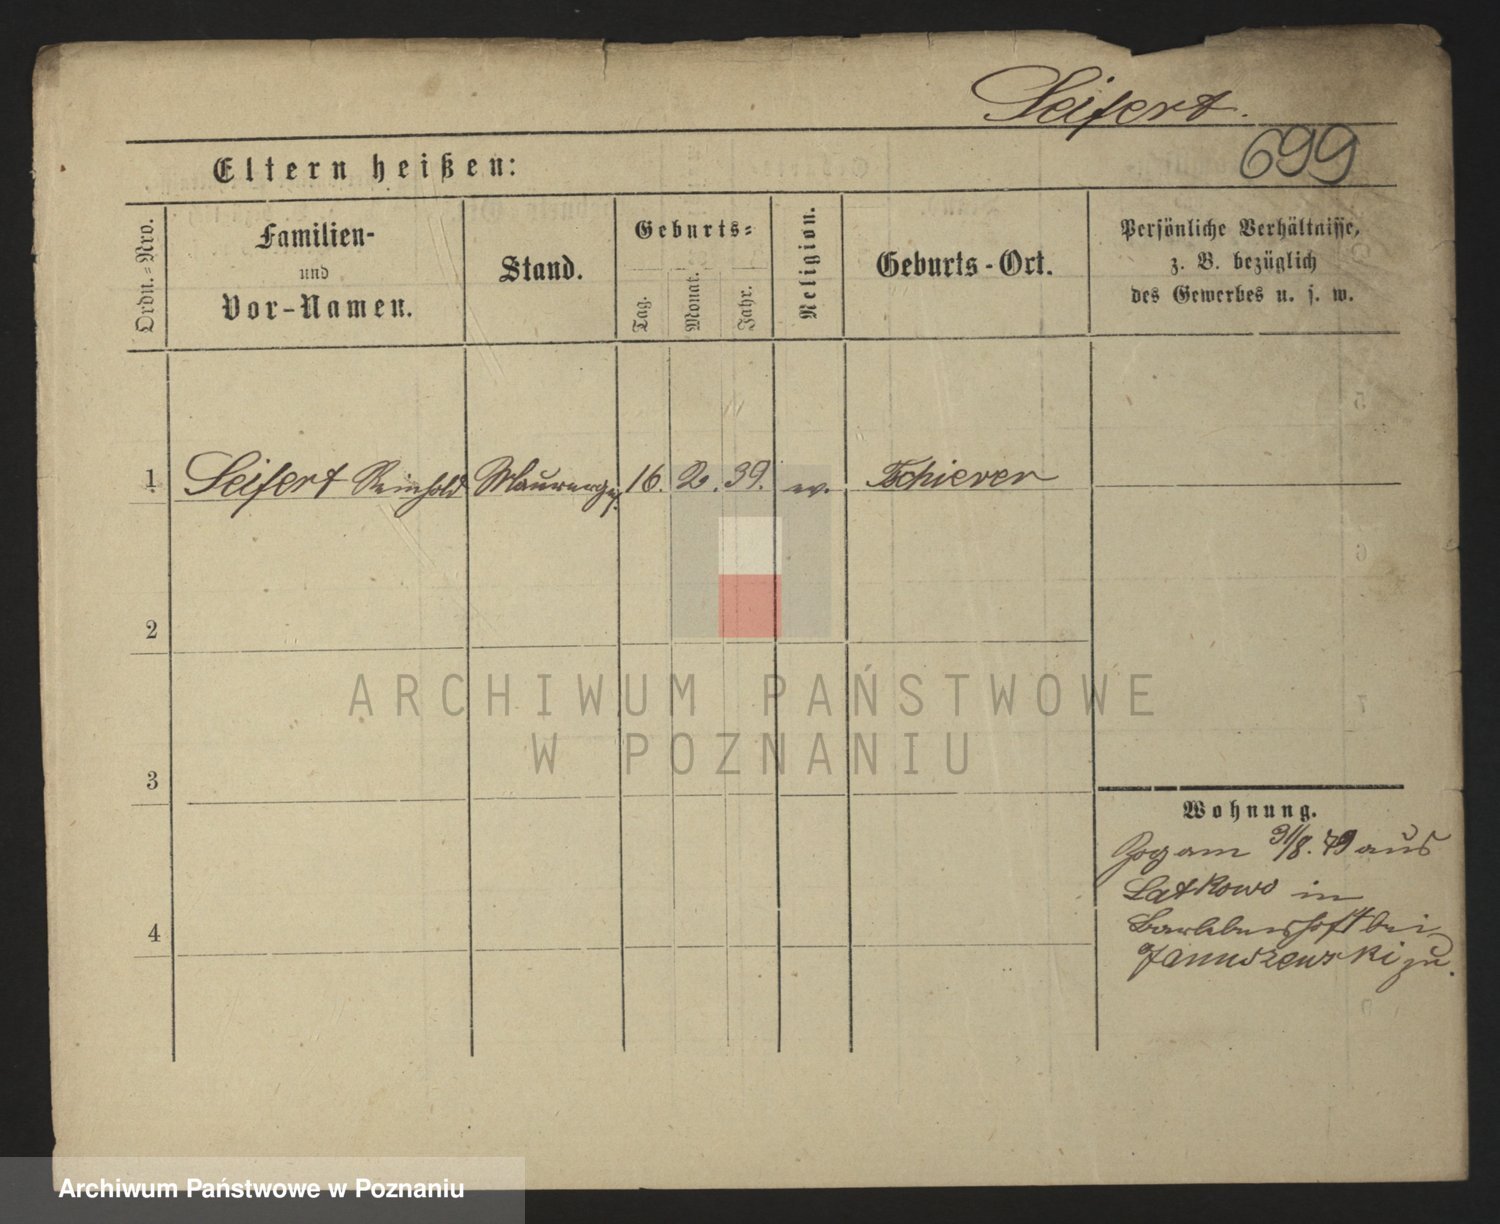 Seifert.
699
Eltern heißen:
Ordn.=Nro.
Familien-
und
Vor-Namen.
Stand.
Geburts=
Tag.
Monat.
Jahr.
Religion.
Geburts-Ort.
Persönliche Verhältnisse,
z. B. bezüglich
des Gewerbes u. s. w.
1 Seifert Reinhold Maurerges. 16. 2. 39. ev. Tschiever
2
3
4
Wohnung.
Zog am 31/8. 79 aus
Latkowo in
bei
Januszewski zu.
ARCHIWUM PAŃSTWOWE
W POZNANIU
Archiwum Państwowe w Poznaniu